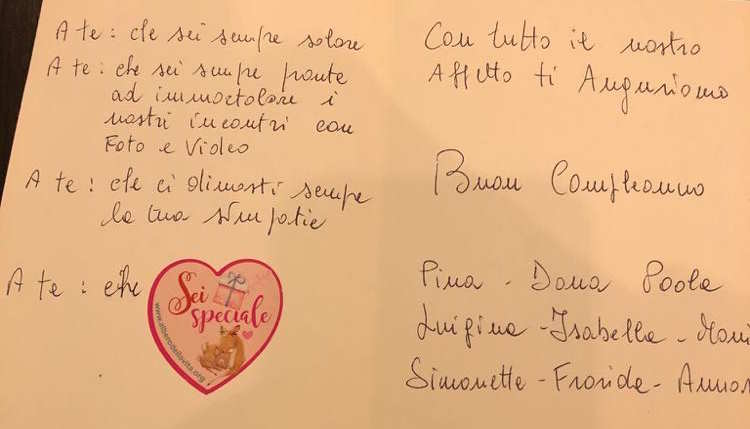 A te: che sei sempre solare
A te: che sei sempre pronta
ad immortalare i
nostri incontri con
Foto e Video
A te: che ci dimostri sempre
la tua simpatia
A te: che
Sei
speciale
www.alberodellavita.org
Con tutto il nostro
Affetto ti Auguriamo
Buon Compleanno
Pina - Dana Paola
Luigina - Isabella -
Simonetta -